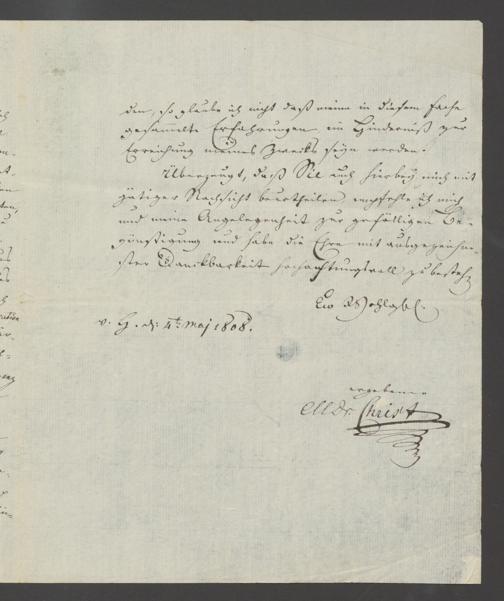 den, so glaube ich nicht daß meine in diesem Fache
gesammelte Erfahrungen ein Hinderniß zur
Erreichung meines Zweks seyn werden.
Überzeugt, daß Sie auch hierbey mich mit
gütiger Nachsicht beurtheilen, empfehle ich mich
und meine Angelegenheit zur gefälligen Be-
günstigung und habe die Ehre mit ausgezeichne-
ster Danckbarkeit hochachtungsvoll zu bestehn
Ew Wohlgeb.
v. H. d. 4t. Maj 1808.
ergebener
Dr Christ